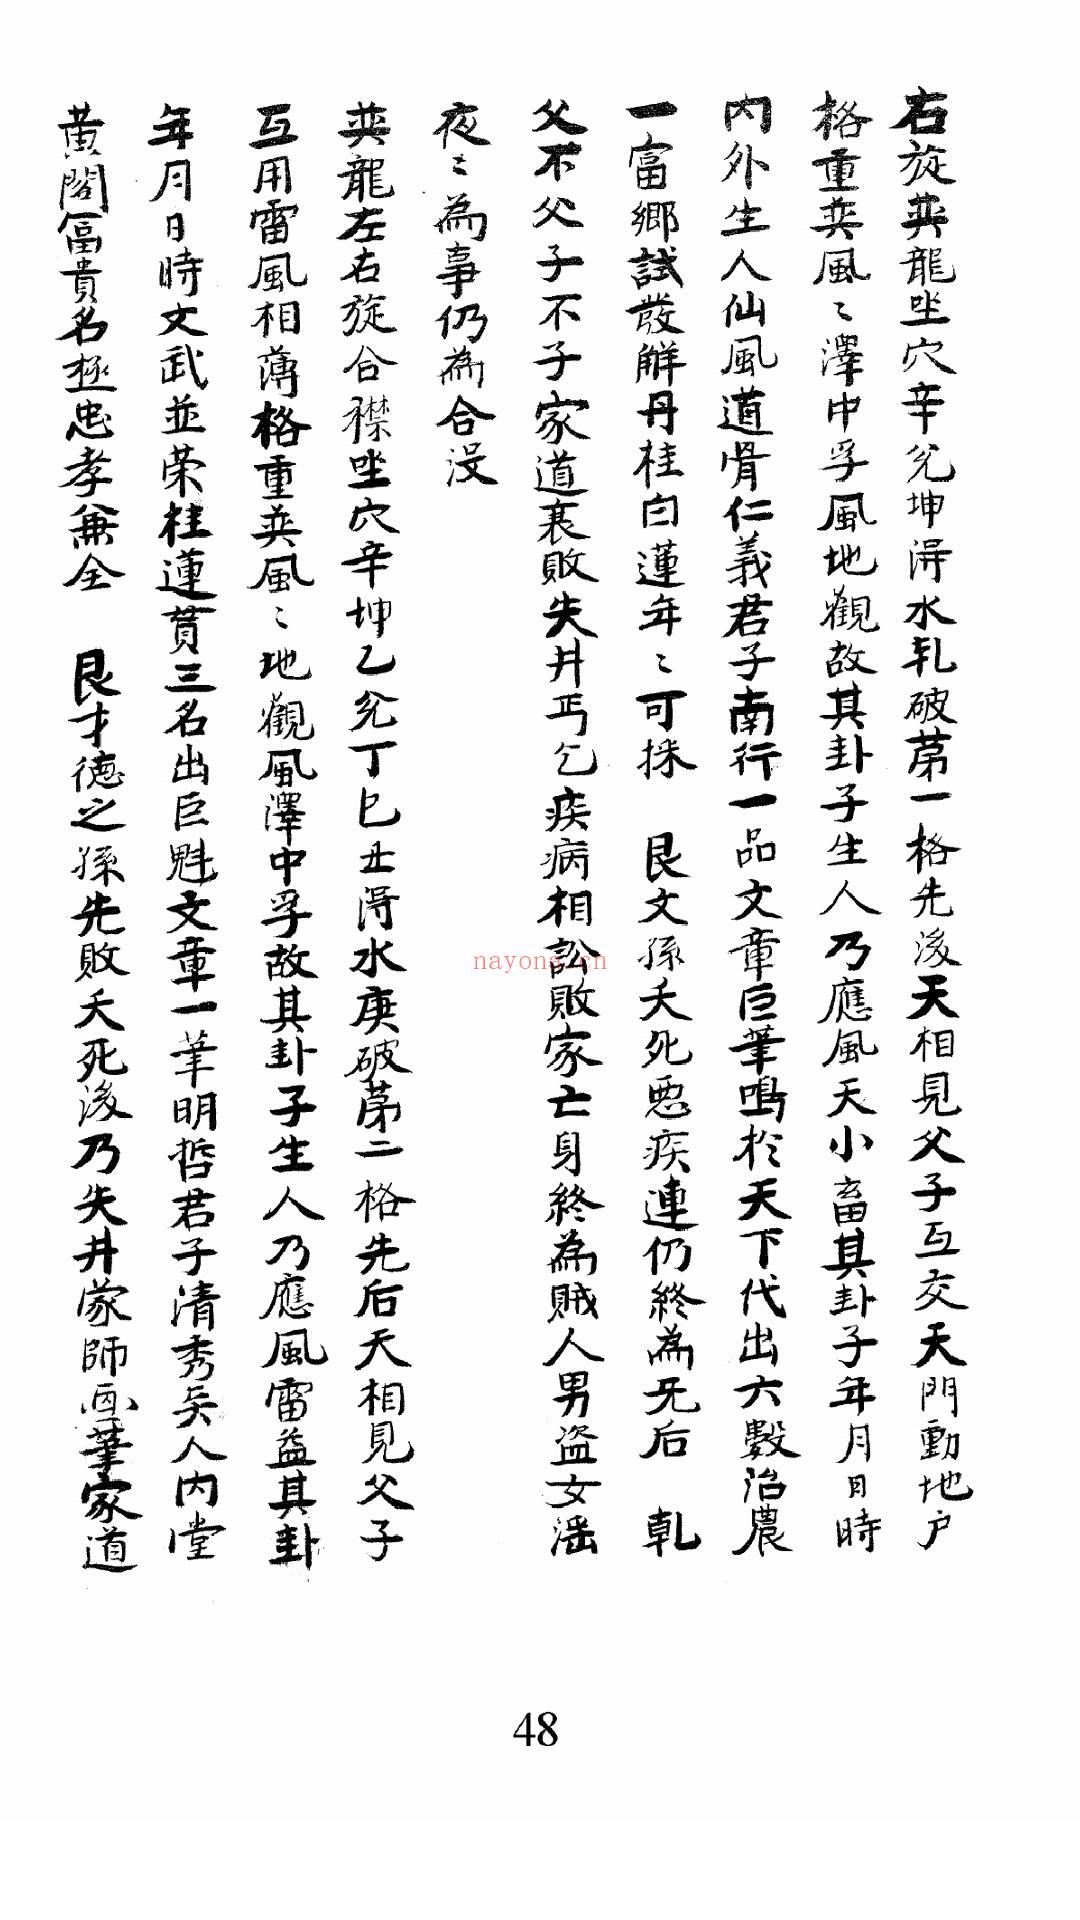 右旋巽龍坐穴辛兊坤淂水乹破苐一格先後天相見父子互交天門動地户
格重巽風〻澤中孚風地觀故其卦子生人乃應風天小畜其卦子年月日時
内外生人仙風道骨仁義君子南行一品文章巨筆鳴於天下代出六數治農
一富鄉試發解丹桂白蓮年〻可採　艮文孫夭死悪疾連仍終為旡后　乹
父不父子不子家道衰敗失井丐乞疾病相訟敗家亡身終為賊人男盗女滛
夜〻為事仍為合没
巽龍左右旋合襟坐穴辛坤乙兊丁巳丑淂水庚破苐二格先后天相見父子
互用雷風相薄格重巽風〻地觀風澤中孚故其卦子生人乃應風雷益其卦
年月日時文武並荣桂蓮貫三名出巨魁文章一筆明哲君子清秀美人内堂
黄閣冨貴名極忠孝兼全　艮才德之孫先敗夭死後乃失井蒙師画筆家道
nayona.cn
48